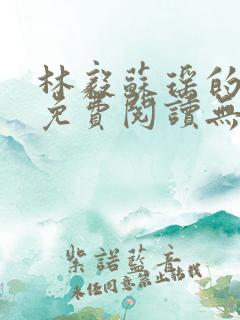 林毅蘇瑶的
免費閱讀無
紫諾藍音
未经同意禁止转载